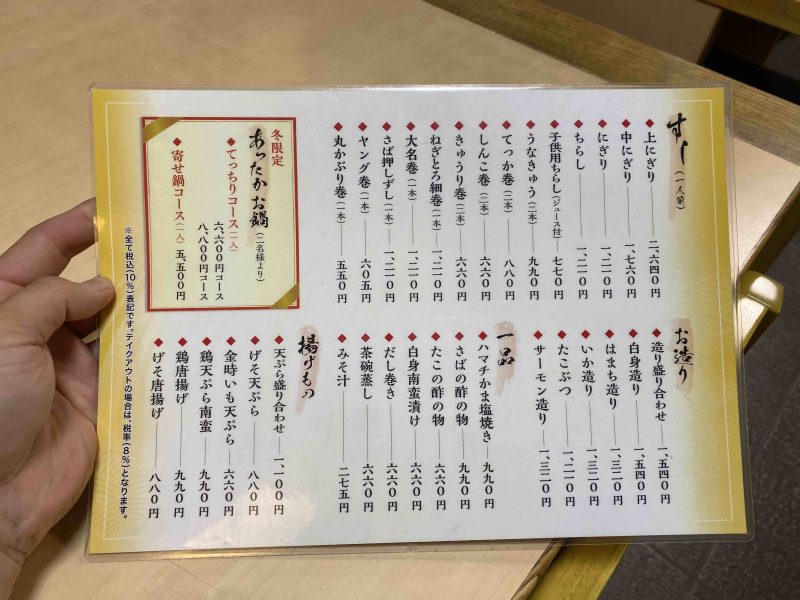 すし(一人前)
上にぎり 二、六四〇円
中にぎり 一、七六〇円
にぎり 一、二一〇円
ちらし 一、二一〇円
子供用ちらし(ジュース付) 七七〇円
うなきゅう(二本) 九九〇円
てっか巻(二本) 八八〇円
しんこ巻(三本) 六六〇円
きゅうり巻(二本) 六六〇円
ねぎとろ細巻(二本) 一、二一〇円
大名巻(一本) 一、二一〇円
さば押しずし(一本) 一、二一〇円
ヤング巻(一本) 六〇五円
丸かぶり巻(一本) 五五〇円
冬限定
あったかお鍋(二名様より)
てっちりコース(一人)
六、六〇〇円コース
八、八〇〇円コース
寄せ鍋コース(一人) 五、五〇〇円
お造り
造り盛り合わせ 一、五四〇円
白身造り 一、五四〇円
はまち造り 一、三二〇円
いか造り 一、三二〇円
たこぶつ 一、二一〇円
サーモン造り 一、三二〇円
一品
ハマチかま塩焼き 九九〇円
さばの酢の物 九九〇円
たこの酢の物 六六〇円
白身南蛮漬け 六六〇円
だし巻き 六六〇円
茶碗蒸し 六六〇円
みそ汁 二七五円
揚げもの
天ぷら盛り合わせ 一、一〇〇円
げそ天ぷら 八八〇円
金時いも天ぷら 六六〇円
鶏天ぷら南蛮 九九〇円
鶏唐揚げ 九九〇円
げそ唐揚げ 八八〇円
※全て税込(10%)表記です。テイクアウトの場合は、税率(8%)となります。